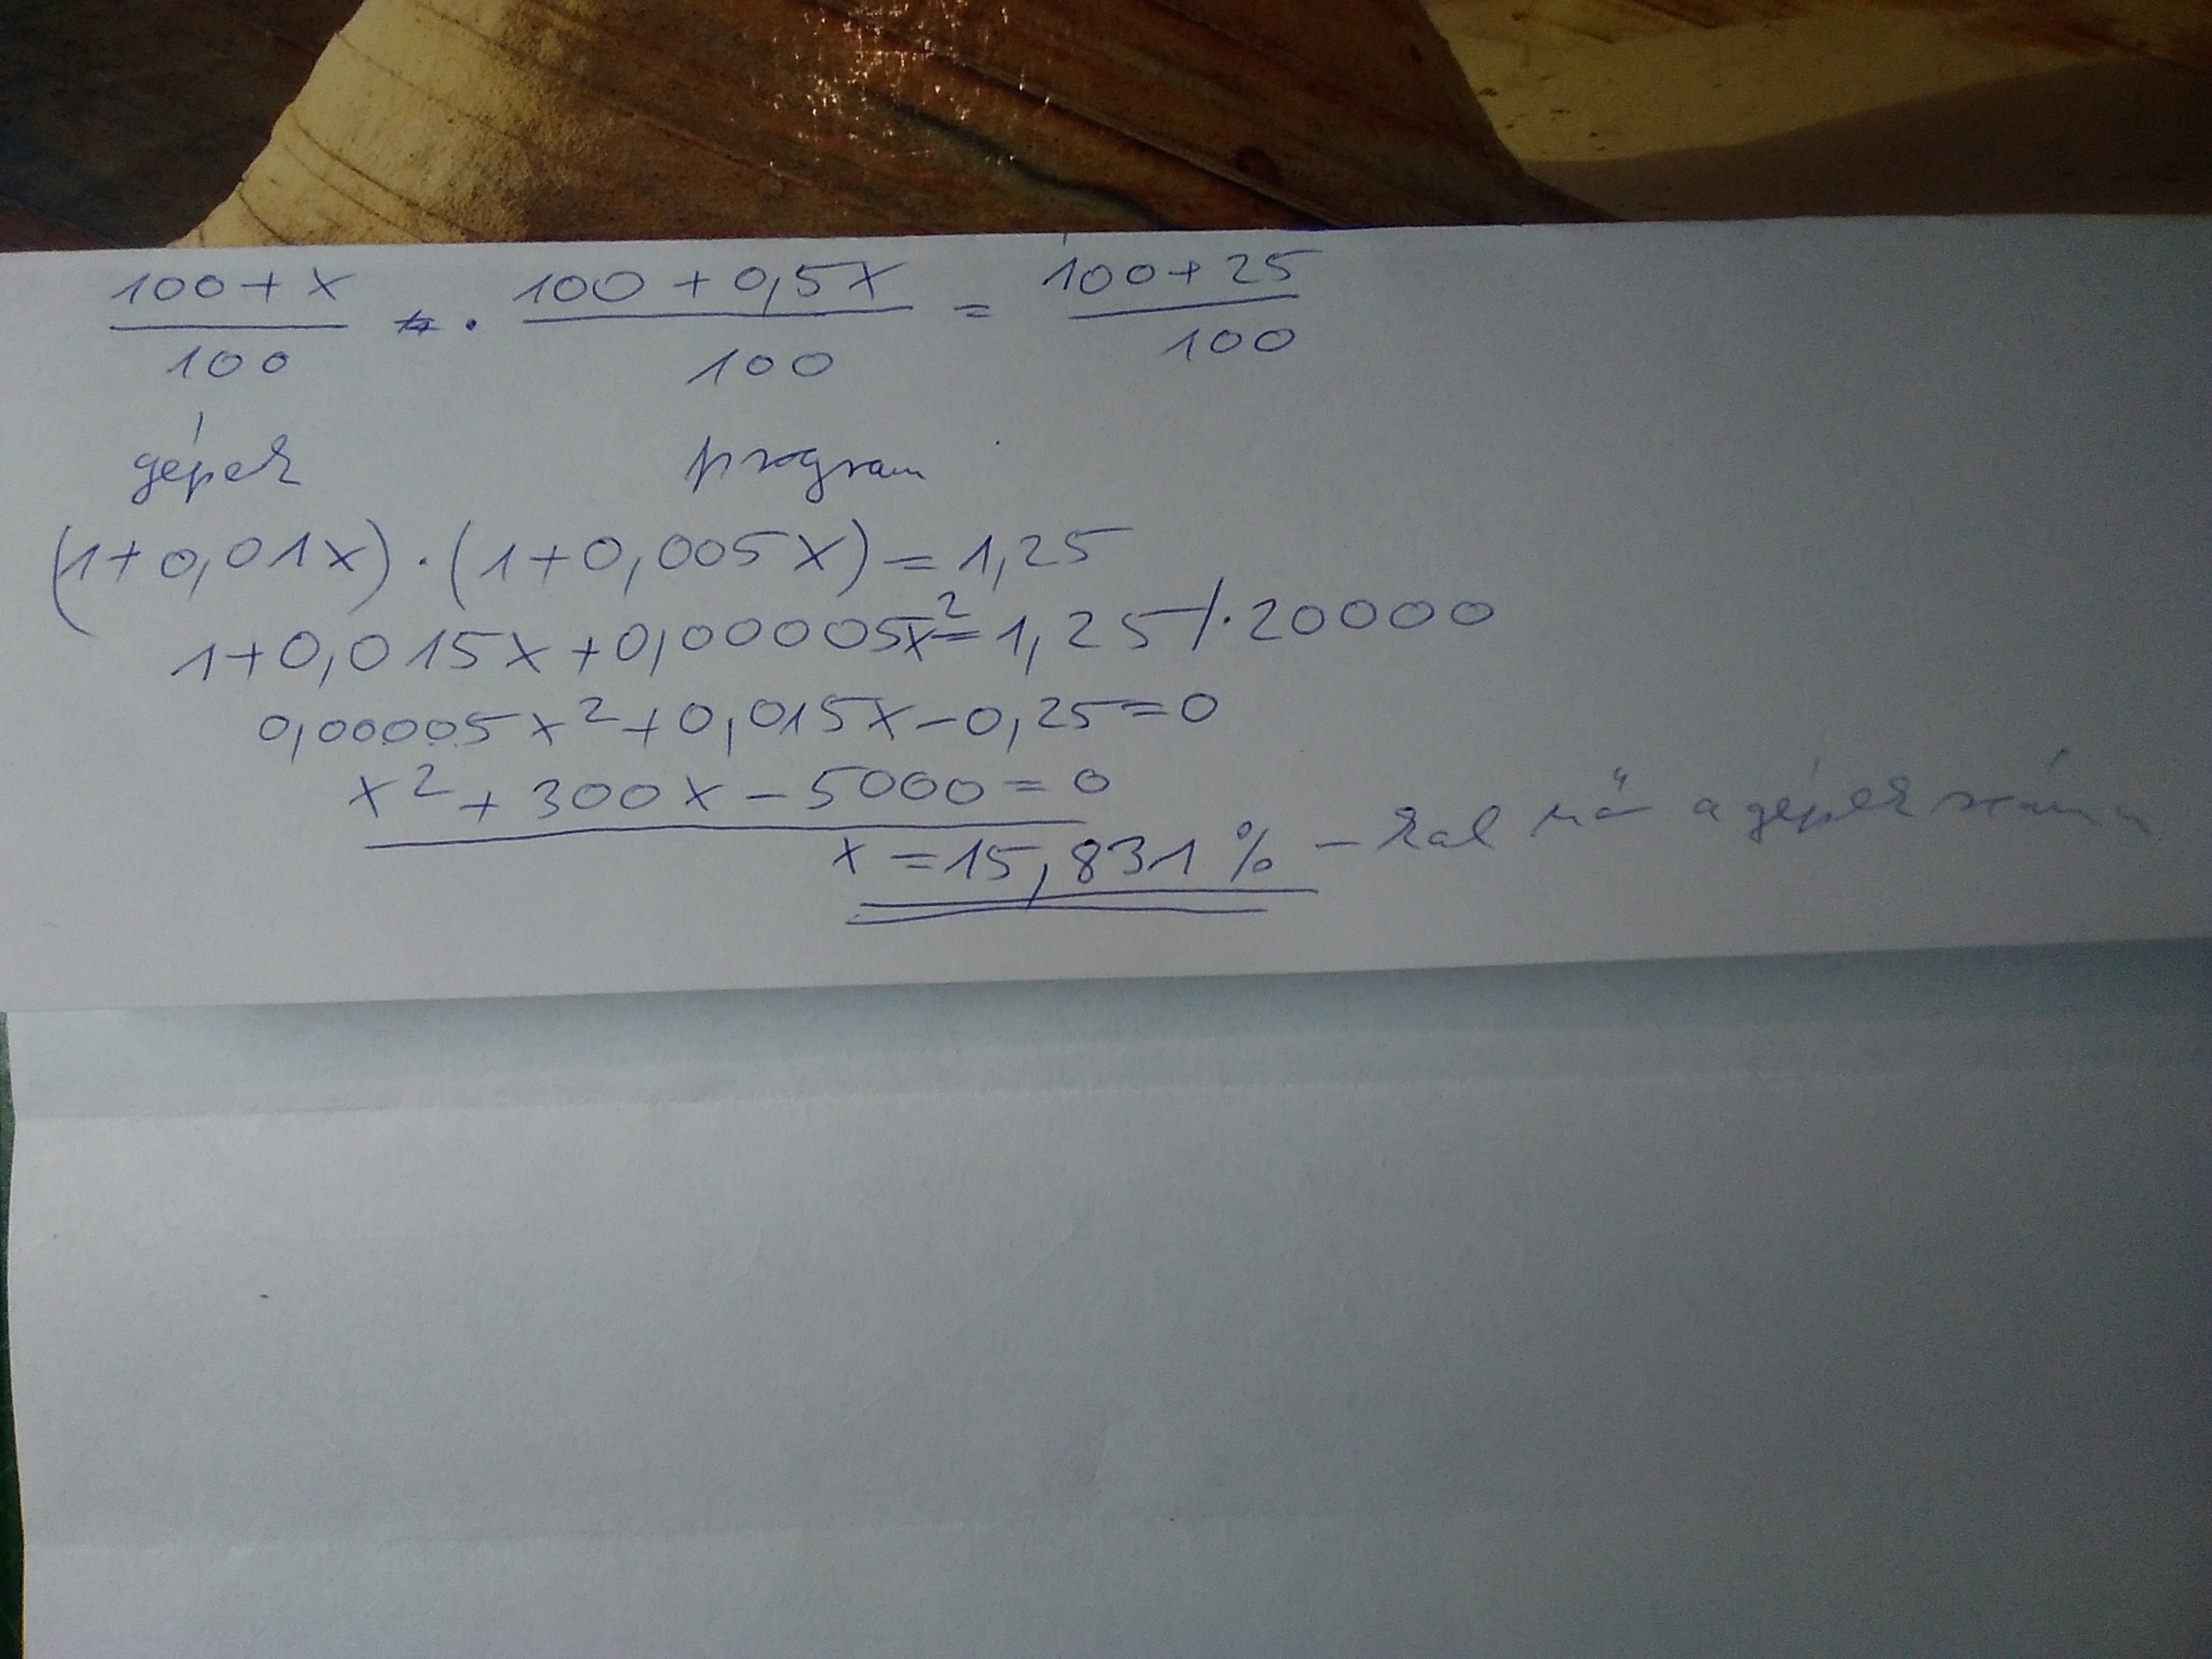 100 + x / 100 · 100 + 0,5x / 100 = 100 + 25 / 100
gépek program
(1+0,01x)·(1+0,005x)=1,25
1+0,015x+0,00005x²=1,25 /·20000
0,00005x²+0,015x-0,25=0
x²+300x-5000=0
x=15,831% -kal nő a gépek száma